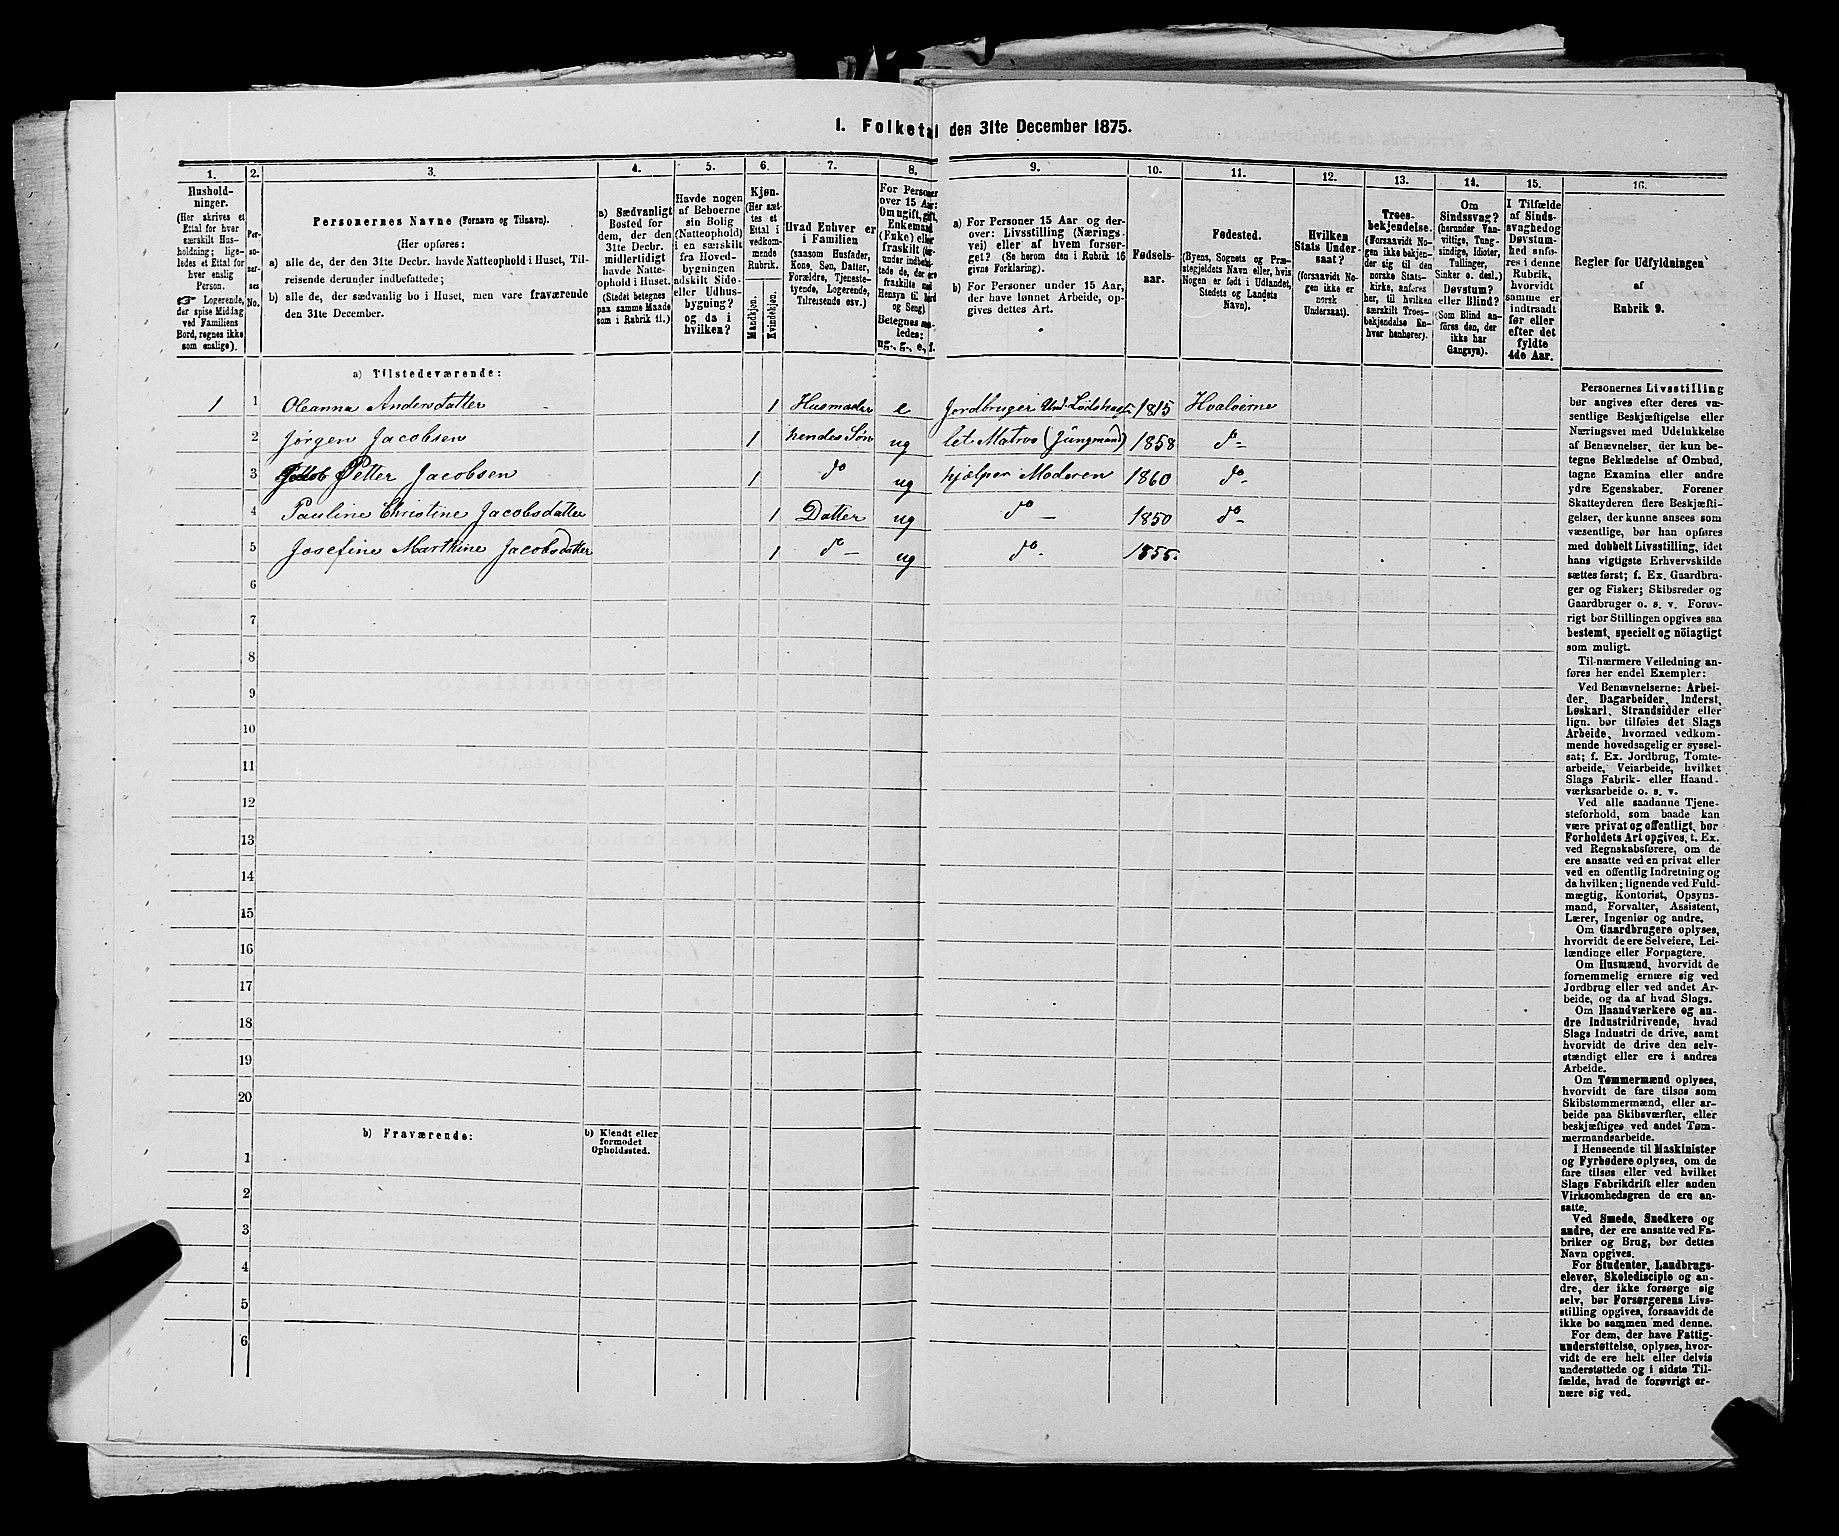 1. Folketal den 31te December 1875.
1.
2.
3.
4.
5.
6.
7.
8.
9.
10.
11.
12.
13.
14.
15.
16.
Hushold-
ninger.
(Her skrives et
Ettal for hver
særskilt Hus-
holdning; lige-
ledes et Ettal for
hver enslig
Person.
☞ Logerende,
der spise Middag
ved Familiens
Bord, regnes ikke
som enslige).
Per-
so-
ner-
nes
No.
Personernes Navne (Fornavn og Tilnavn).
(Her opføres:
a) alle de, der den 31te Decbr. havde Natteophold i Huset, Til-
reisende derunder indbefattede;
b) alle de, der sædvanlig bo i Huset, men vare fraværende
den 31te December.
a) Sædvanligt
Bosted for
dem, der den
31te Decbr.
midlertidigt
havde Natte-
ophold i Huset.
(Stedet betegnes
paa samme Maade
som i Rubrik 11.)
Havde nogen
af Beboerne
sin Bolig
(Natteophold)
i en særskilt
fra Hoved-
bygningen
adskilt Side-
eller Udhus-
bygning?
og da i
hvilken?
Kjøn.
(Her sæt-
tes et
Ettal i
vedkom-
mende
Rubrik.
Mandkjøn.
Kvindekjøn.
Hvad Enhver er
i Familien
(saasom Husfader,
Kone, Søn, Datter,
Forældre, Tjeneste-
tyende, Logerende,
Tilreisende osv.)
For Personer
over 15 Aar:
Om ugift, gift,
Enkemand
(Enke) eller
fraskilt (der-
under indbefat-
tede de, der ere
fraskilte med
Hensyn til Bord
og Seng)
Betegnes saa-
ledes:
ug-, g-, e, f.
a) For Personer 15 Aar og der-
over: Livsstilling (Nærings-
vei) eller af hvem forsør-
get? (Se herom den i Rubrik 16
givne Forklaring).
b) For Personer under 15 Aar,
der have lønnet Arbeide, op-
gives dettes Art.
Fødsels-
aar.
Fødested.
(Byens, Sognets og Præ-
stegjeldets Navn eller, hvis
Nogen er født i Udlandet,
Stedets og Landets
Navn).
Hvilken
Stats Under-
saat?
(forsaavidt No-
gen ikke er
norsk
Undersaat).
Troes-
bekjendelse.
(Forsaavidt No-
gen ikke bekjen-
der sig til den
norske Stats-
kirke, anføres
her, til hvilken
særskilt Troes-
bekjendelse En-
hver henhører).
Om
Sindssvag?
(herunder Van-
vittige, Tung-
sindige, Idioter,
Tullinger,
Sinker o. desl.)
Døvstum?
eller Blind?
(Som Blind an-
føres den, der
ikke har
Gangsyn).
I Tilfælde
af Sinds-
svaghed og
Døvstum-
hed anfø-
res i denne
Rubrik,
hvorvidt
samme er
indtraadt
før eller
efter det
fyldte
4de Aar.
Regler for Udfyldningen
af
Rubrik 9.
a) Tilstedeværende:
1 1 Oleanna Andersdatter 1 Husmoder e Jordbruger 1815 Hvaløerne
2 Jørgen Jacobsen 1 hendes Søn ug let Matros (Jungmand) 1858 do-
3 Petter Jacobsen 1 do ug hjælper Moderen 1860 do-
4 Pauline Christine Jacobsdatter 1 Datter ug do- 1850 do-
5 Josefine Marthine Jacobsdatter 1 do- ug do- 1855.
6
7
8
9
10
11
12
13
14
15
16
17
18
19
20
b) Fraværende:
b) Kjendt eller
formodet
Opholdssted.
1
2
3
4
5
6
Personernes Livsstilling
bør angives efter deres væ-
sentlige Beskjæftigelse eller
Næringsvei med Udelukkelse
af Benævnelser, der kun be-
tegne Beklædelse af Ombud,
tagne Examina eller andre
ydre Egenskaber. Forener
Skatteyderen flere Beskjæfti-
gelser, der kunne ansees som
væsentlige, bør han opføres
med dobbelt Livsstilling, idet
hans vigtigste Erhvervskilde
sættes først; f. Ex. Gaardbru-
ger og Fisker; Skibsreder og
Gaardbruger o. s. v. Forøv-
rigt bør Stillingen opgives saa
bestemt, specielt og nöiagtigt
som muligt.
Til nærmere Veiledning an-
føres her endel Exempler:
Ved Benævnelserne: Arbei-
der, Dagarbeider, Inderst,
Løskarl, Strandsidder eller
lign. bør tilføies det Slags
Arbeide, hvormed vedkom-
mende hovedsagelig er syssel-
sat; f. Ex. Jordbrug, Tomte-
arbeide, Veiarbeide, hvilket
Slags Fabrik- eller Haand-
værksarbeide o. s. v.
Ved alle saadanne Tjene-
steforhold, som baade kan
være privat og offentligt, bør
Forholdets Art opgives, t. Ex.
ved Regnskabsførere, om de
ere ansatte ved en privat eller
ved en offentlig Indretning og
da hvilken; lignende ved Fuld-
mægtig, Kontorist, Opsyns-
mand, Forvalter, Assistent,
Lærer, Ingeniør og andre.
Om Gaardbrugere oplyses,
hvorvidt de ere Selveiere, Lei-
lændinge eller Forpagtere.
Om Husmænd, hvorvidt de
fornemmelig ernære sig ved
Jordbrug eller ved andet Ar-
beide, og da af hvad Slags.
Om Haandværkere og an-
dre Industridrivende, hvad
Slags Industri de drive, samt
hvorvidt de drive den selv-
stændigt eller ere i andres
Arbeide.
Om Tømmermænd oplyses,
hvorvidt de fare tilsøs som
Skibstømmermænd, eller ar-
beide paa Skibsværfter, eller
beskjæftiges ved andet Tøm-
mermandsarbeide.
I Henseende til Maskinister
og Fyrbødere oplyses, om de
fare tilsøs eller ved hvilket
Slags Fabrikdrift eller anden
Virksomhedsgren de ere an-
satte.
Ved Smede, Snedkere og
andre, der ere ansatte ved Fa-
briker og Brug, bør dettes
Navn opgives.
For Studenter, Landbrugs-
elever, Skoledisciple og an-
dre, der ikke forsørge sig
selv, bør Forsørgerens Livs-
stilling opgives, forsaavidt de
ikke bo sammen med denne.
For dem, der have Fattig-
understøttelse, oplyses, hvor-
vidt de ere helt eller delvis
understøttede og i sidste Til-
fælde, hvad de forøvrigt er-
nære sig ved.